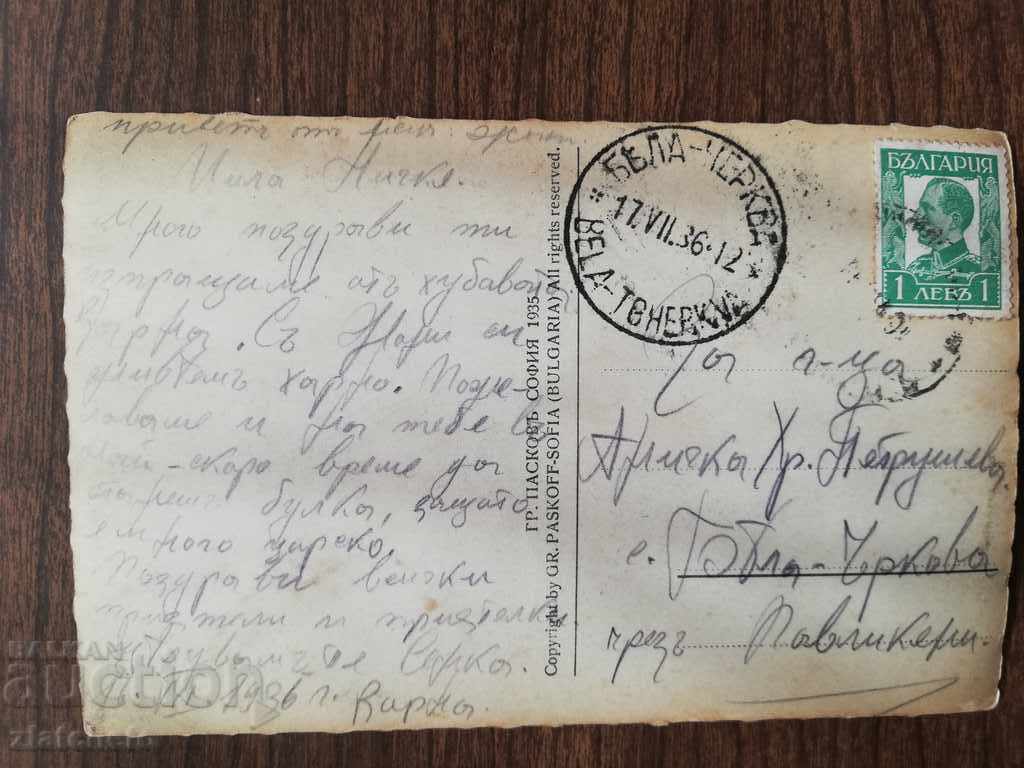 приветъ отъ
Мила Аничке.
Много поздрави ти
изпращаме отъ хубавата
Варна. Съ
живѣемъ харно. Поже-
лаваме и на тебе въ
най-скоро време да
булка, защото
е много царско.
Поздрави всички
приятели и приятелки.
Цѣлувамъ те
1936 г. Варна.
ГР. ПАСКОВЪ СОФИЯ 1935
Copyright by GR. PASKOFF-SOFIA (BULGARIA) All rights reserved.
БѢЛА-ЧЕРКВА
17.VII.36-12
BELA-TCHERKVA
БЪЛГАРИЯ
1 ЛЕВЪ 1
За г-ца
Аничка Хр. Петрушева
с. Бѣла-Чркова
чрезъ Павликени
BALKAN
auction
zlatcheto